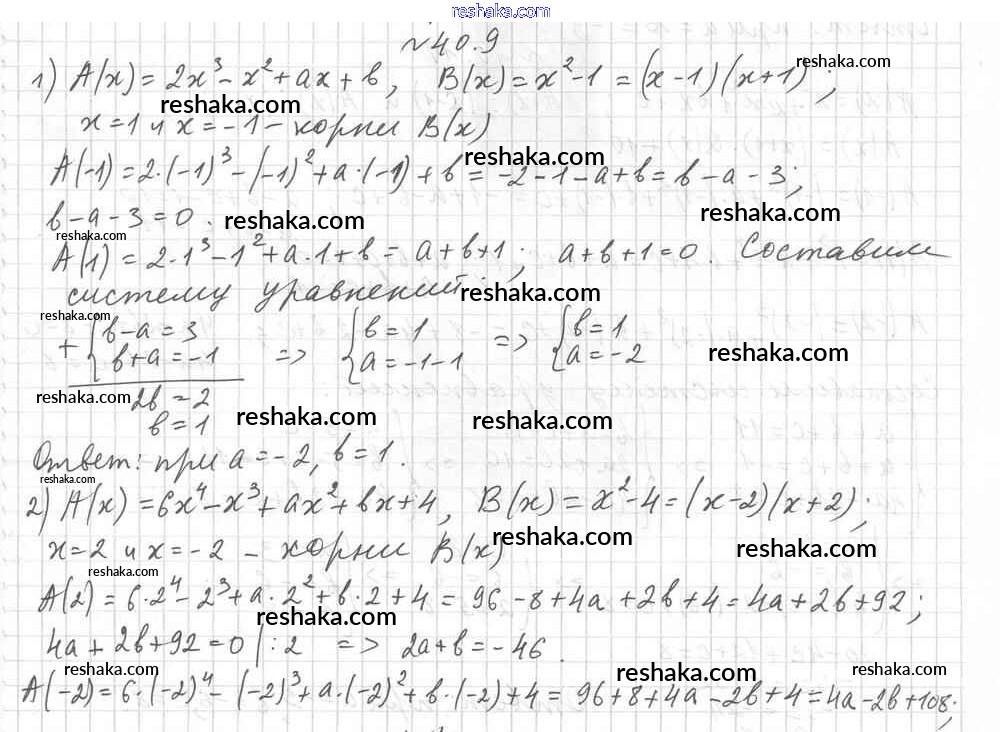 reshaka.com
№40.9
1) A(x) = 2x³ - x² + ax + b, B(x) = x² - 1 = (x-1)(x+1);
reshaka.com
reshaka.com
x=1 и x=-1 - корни B(x)
A(-1) = 2·(-1)³ - (-1)² + a·(-1) + b = -2 - 1 - a + b = b - a - 3;
reshaka.com
b - a - 3 = 0.
reshaka.com
reshaka.com
reshaka.com
A(1) = 2·1³ - 1² + a·1 + b = a + b + 1; a + b + 1 = 0. Составим
систему уравнений:
reshaka.com
reshaka.com
+ { b - a = 3
b + a = -1 => { b = 1
a = -1-1 => { b = 1
a = -2
reshaka.com
reshaka.com
2b = 2
b = 1
reshaka.com
reshaka.com
Ответ: при a = -2, b = 1.
reshaka.com
2) A(x) = 6x⁴ - x³ + ax² + bx + 4, B(x) = x² - 4 = (x-2)(x+2);
reshaka.com
reshaka.com
x=2 и x=-2 - корни B(x)
reshaka.com
A(2) = 6·2⁴ - 2³ + a·2² + b·2 + 4 = 96 - 8 + 4a + 2b + 4 = 4a + 2b + 92;
reshaka.com
4a + 2b + 92 = 0 |:2 => 2a + b = -46.
reshaka.com
reshaka.com
reshaka.com
A(-2) = 6·(-2)⁴ - (-2)³ + a·(-2)² + b·(-2) + 4 = 96 + 8 + 4a - 2b + 4 = 4a - 2b + 108;
reshaka.com
reshaka.com